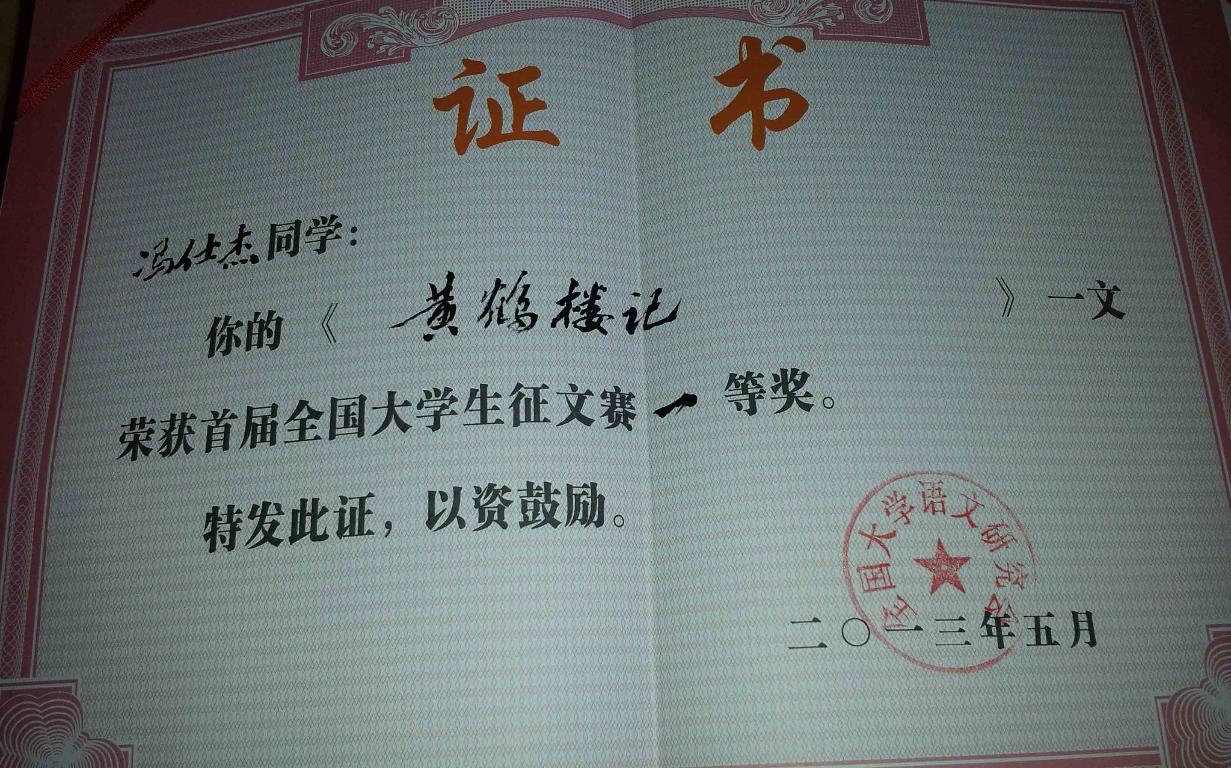 证书
冯仕杰同学：
你的《黄鹤楼记》一文
荣获首届全国大学生征文赛一等奖。
特发此证，以资鼓励。
全国大学语文研究会
二〇一三年五月